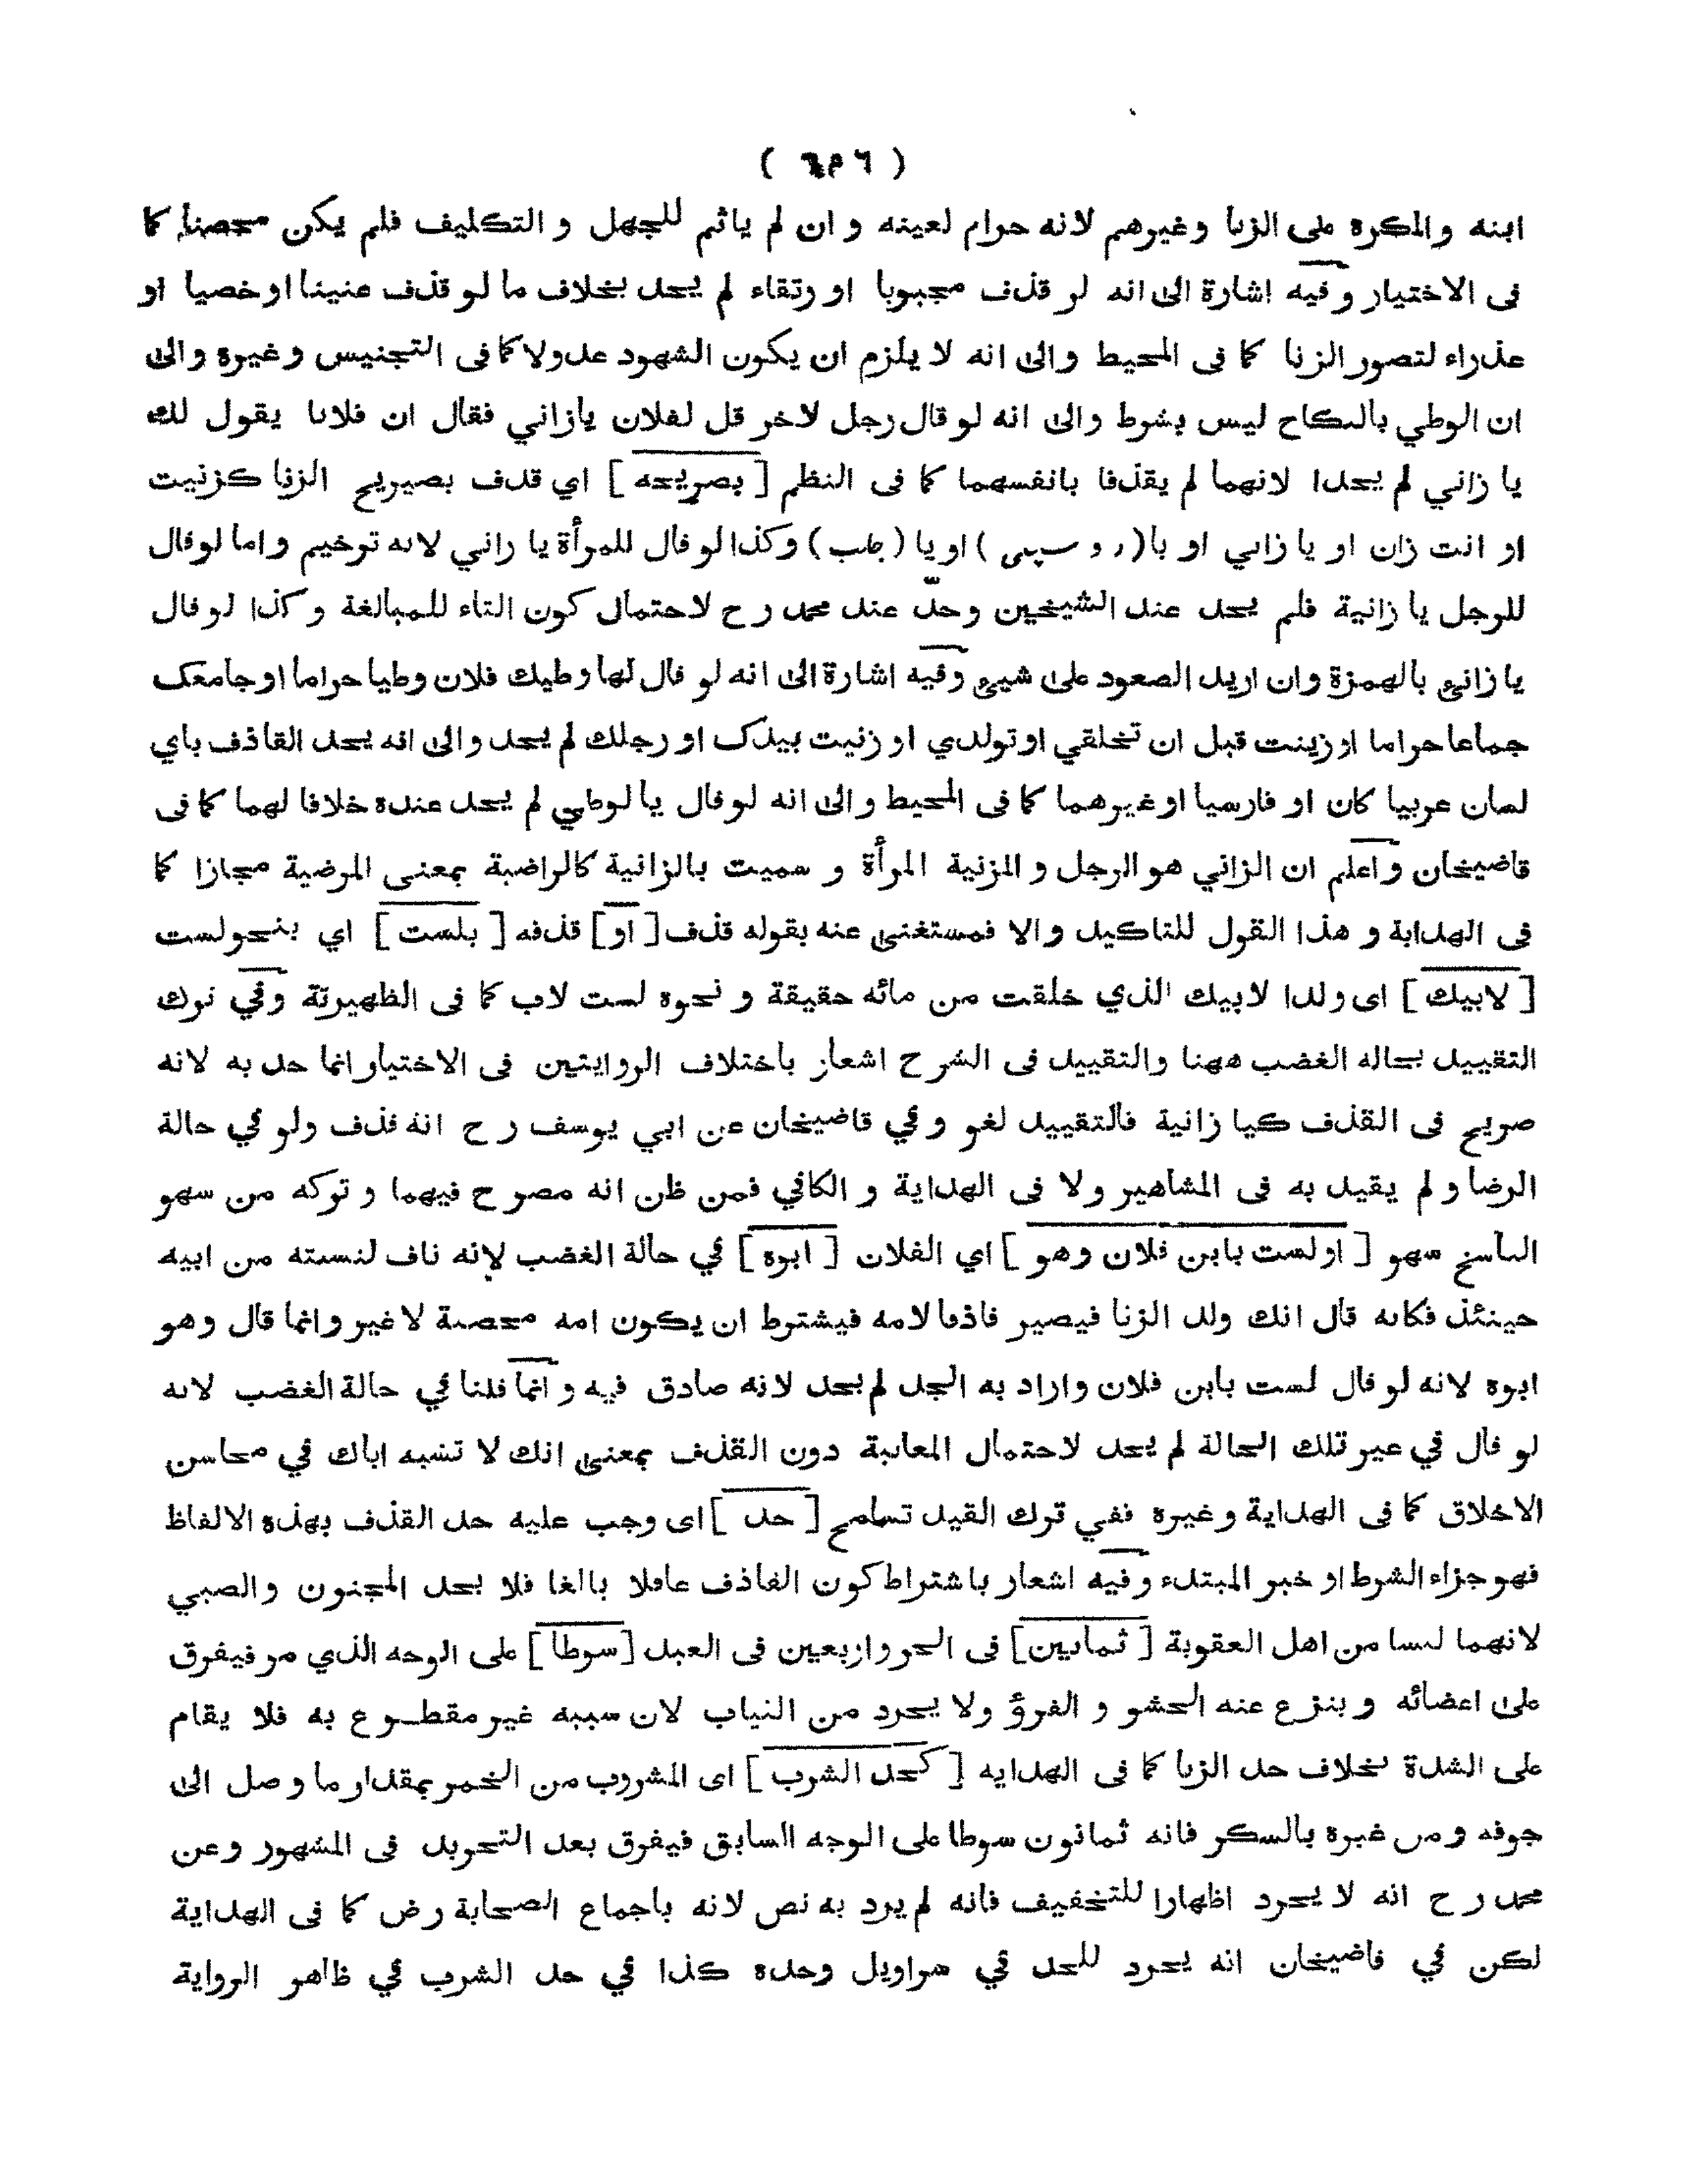 ابنه والمكره على الزنا وغيرهم لانه حرام لعينه و ان لم ياثم للجهل و التكليف فلم يكن محصنا كما
فى الاختيار وفيه اشارة الى انه لو قذف مجبوبا او رتقاء لم يحد بخلاف ما لو قذف عنينا او خصيا او
عذراء لتصور الزنا كما فى المحيط والى انه لا يلزم ان يكون الشهود عدولا كما فى التجنيس وغيره والى
ان الوطي بالنكاح ليس بشرط والى انه لو قال رجل لاخر قل لفلان يازاني فقال ان فلانا يقول لك
يا زاني لم يحدا لانهما لم يقذفا بانفسهما كما فى النظم [ بصريحه ] اي قذف بصيريح الزنا كزنيت
او انت زان او يا زانى او يا ( روسپى ) او يا ( جلب ) وكذا لو قال للمرأة يا زاني لانه ترخيم واما لو قال
للرجل يا زانية فلم يحد عند الشيخين وحدّ عند محمد رح لاحتمال كون التاء للمبالغة وكذا لو قال
يا زانئ بالهمزة وان اريد الصعود على شيئ وفيه اشارة الى انه لو قال لها وطيك فلان وطيا حراما او جامعك
جماعا حراما او زينت قبل ان تخلقي او تولدي او زنيت بيدك او رجلك لم يحد والى انه يحد القاذف باي
لسان عربيا كان او فارسيا او غيرهما كما فى المحيط والى انه لو قال يا لوطي لم يحد عنده خلافا لهما كما فى
قاضيخان واعلم ان الزاني هو الرجل و المزنية المرأة و سميت بالزانية كالراضية بمعنى المرضية مجازا كما
فى الهداية و هذا القول للتاكيد والا فمستغنى عنه بقوله قذف [ او ] قذفه [ بلست ] اي بنحو لست
[ لابيك ] اى ولدا لابيك الذي خلقت من مائه حقيقة و نحوه لست لاب كما فى الظهيرية وفي ترك
التقييد بحاله الغضب ههنا والتقييد فى الشرح اشعار باختلاف الروايتين فى الاختيار انما حد به لانه
صريح فى القذف كيا زانية فالتقييد لغو وفي قاضيخان عن ابي يوسف رح انه قذف ولو في حالة
الرضا ولم يقيد به فى المشاهير ولا فى الهداية و الكافي فمن ظن انه مصرح فيهما و تركه من سهو
الناسخ سهو [ او لست بابن فلان وهو ] اي الفلان [ ابوه ] في حالة الغضب لانه ناف لنسبته من ابيه
حينئذ فكانه قال انك ولد الزنا فيصير قاذفا لامه فيشترط ان يكون امه محصنة لا غير وانما قال وهو
ابوه لانه لو قال لست بابن فلان واراد به الجد لم يحد لانه صادق فيه وانما قلنا في حالة الغضب لانه
لو قال في غير تلك الحالة لم يحد لاحتمال المعاتبة دون القذف بمعنى انك لا تشبه اباك في محاسن
الاخلاق كما فى الهداية وغيره ففي ترك القيد تسامح [ حد ] اى وجب عليه حد القذف بهذه الالفاظ
فهو جزاء الشرط او خبر المبتدء وفيه اشعار باشتراط كون القاذف عاقلا بالغا فلا يحد المجنون والصبي
لانهما ليسا من اهل العقوبة [ ثمانين ] فى الحر واربعين فى العبد [ سوطا ] على الوجه الذي مر فيفرق
على اعضائه وينزع عنه الحشو و الفرؤ ولا يجرد من الثياب لان سببه غير مقطوع به فلا يقام
على الشدة بخلاف حد الزنا كما فى الهدايه [ كحد الشرب ] اى المشروب من الخمر بمقدار ما وصل الى
جوفه ومن غيره بالسكر فانه ثمانون سوطا على الوجه السابق فيفرق بعد التجريد فى المشهور وعن
محمد رح انه لا يجرد اظهارا للتخفيف فانه لم يرد به نص لانه باجماع الصحابة رض كما فى الهداية
لكن في قاضيخان انه يجرد للحد في سراويل وحده كذا في حد الشرب في ظاهر الرواية